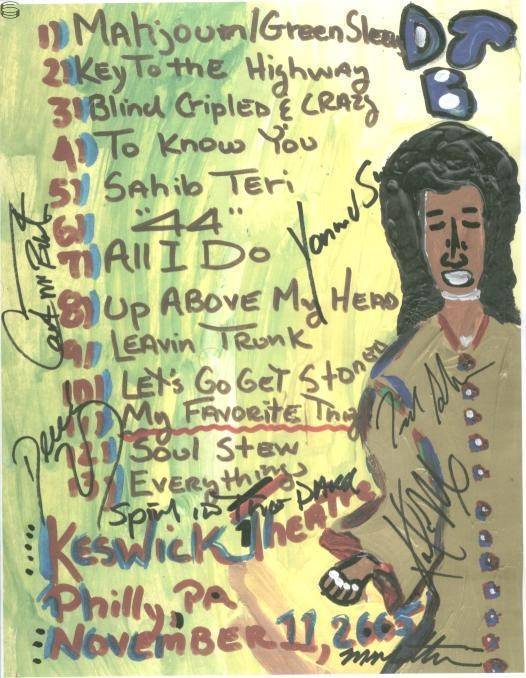 DT
B
1) Mahjoum/GreenSleev
2) Key To the Highway
3) Blind Cripled & CRAZY
4) To Know You
5) Sahib Teri
6) "44"
7) All I Do
8) Up Above My Head
9) Leavin Trunk
10) Let's Go Get Stoned
11) My Favorite Thing
12) Soul Stew
13) Everything
Spin is The DARK
Keswick Theatre
Philly, PA
November 11, 2005
Derek